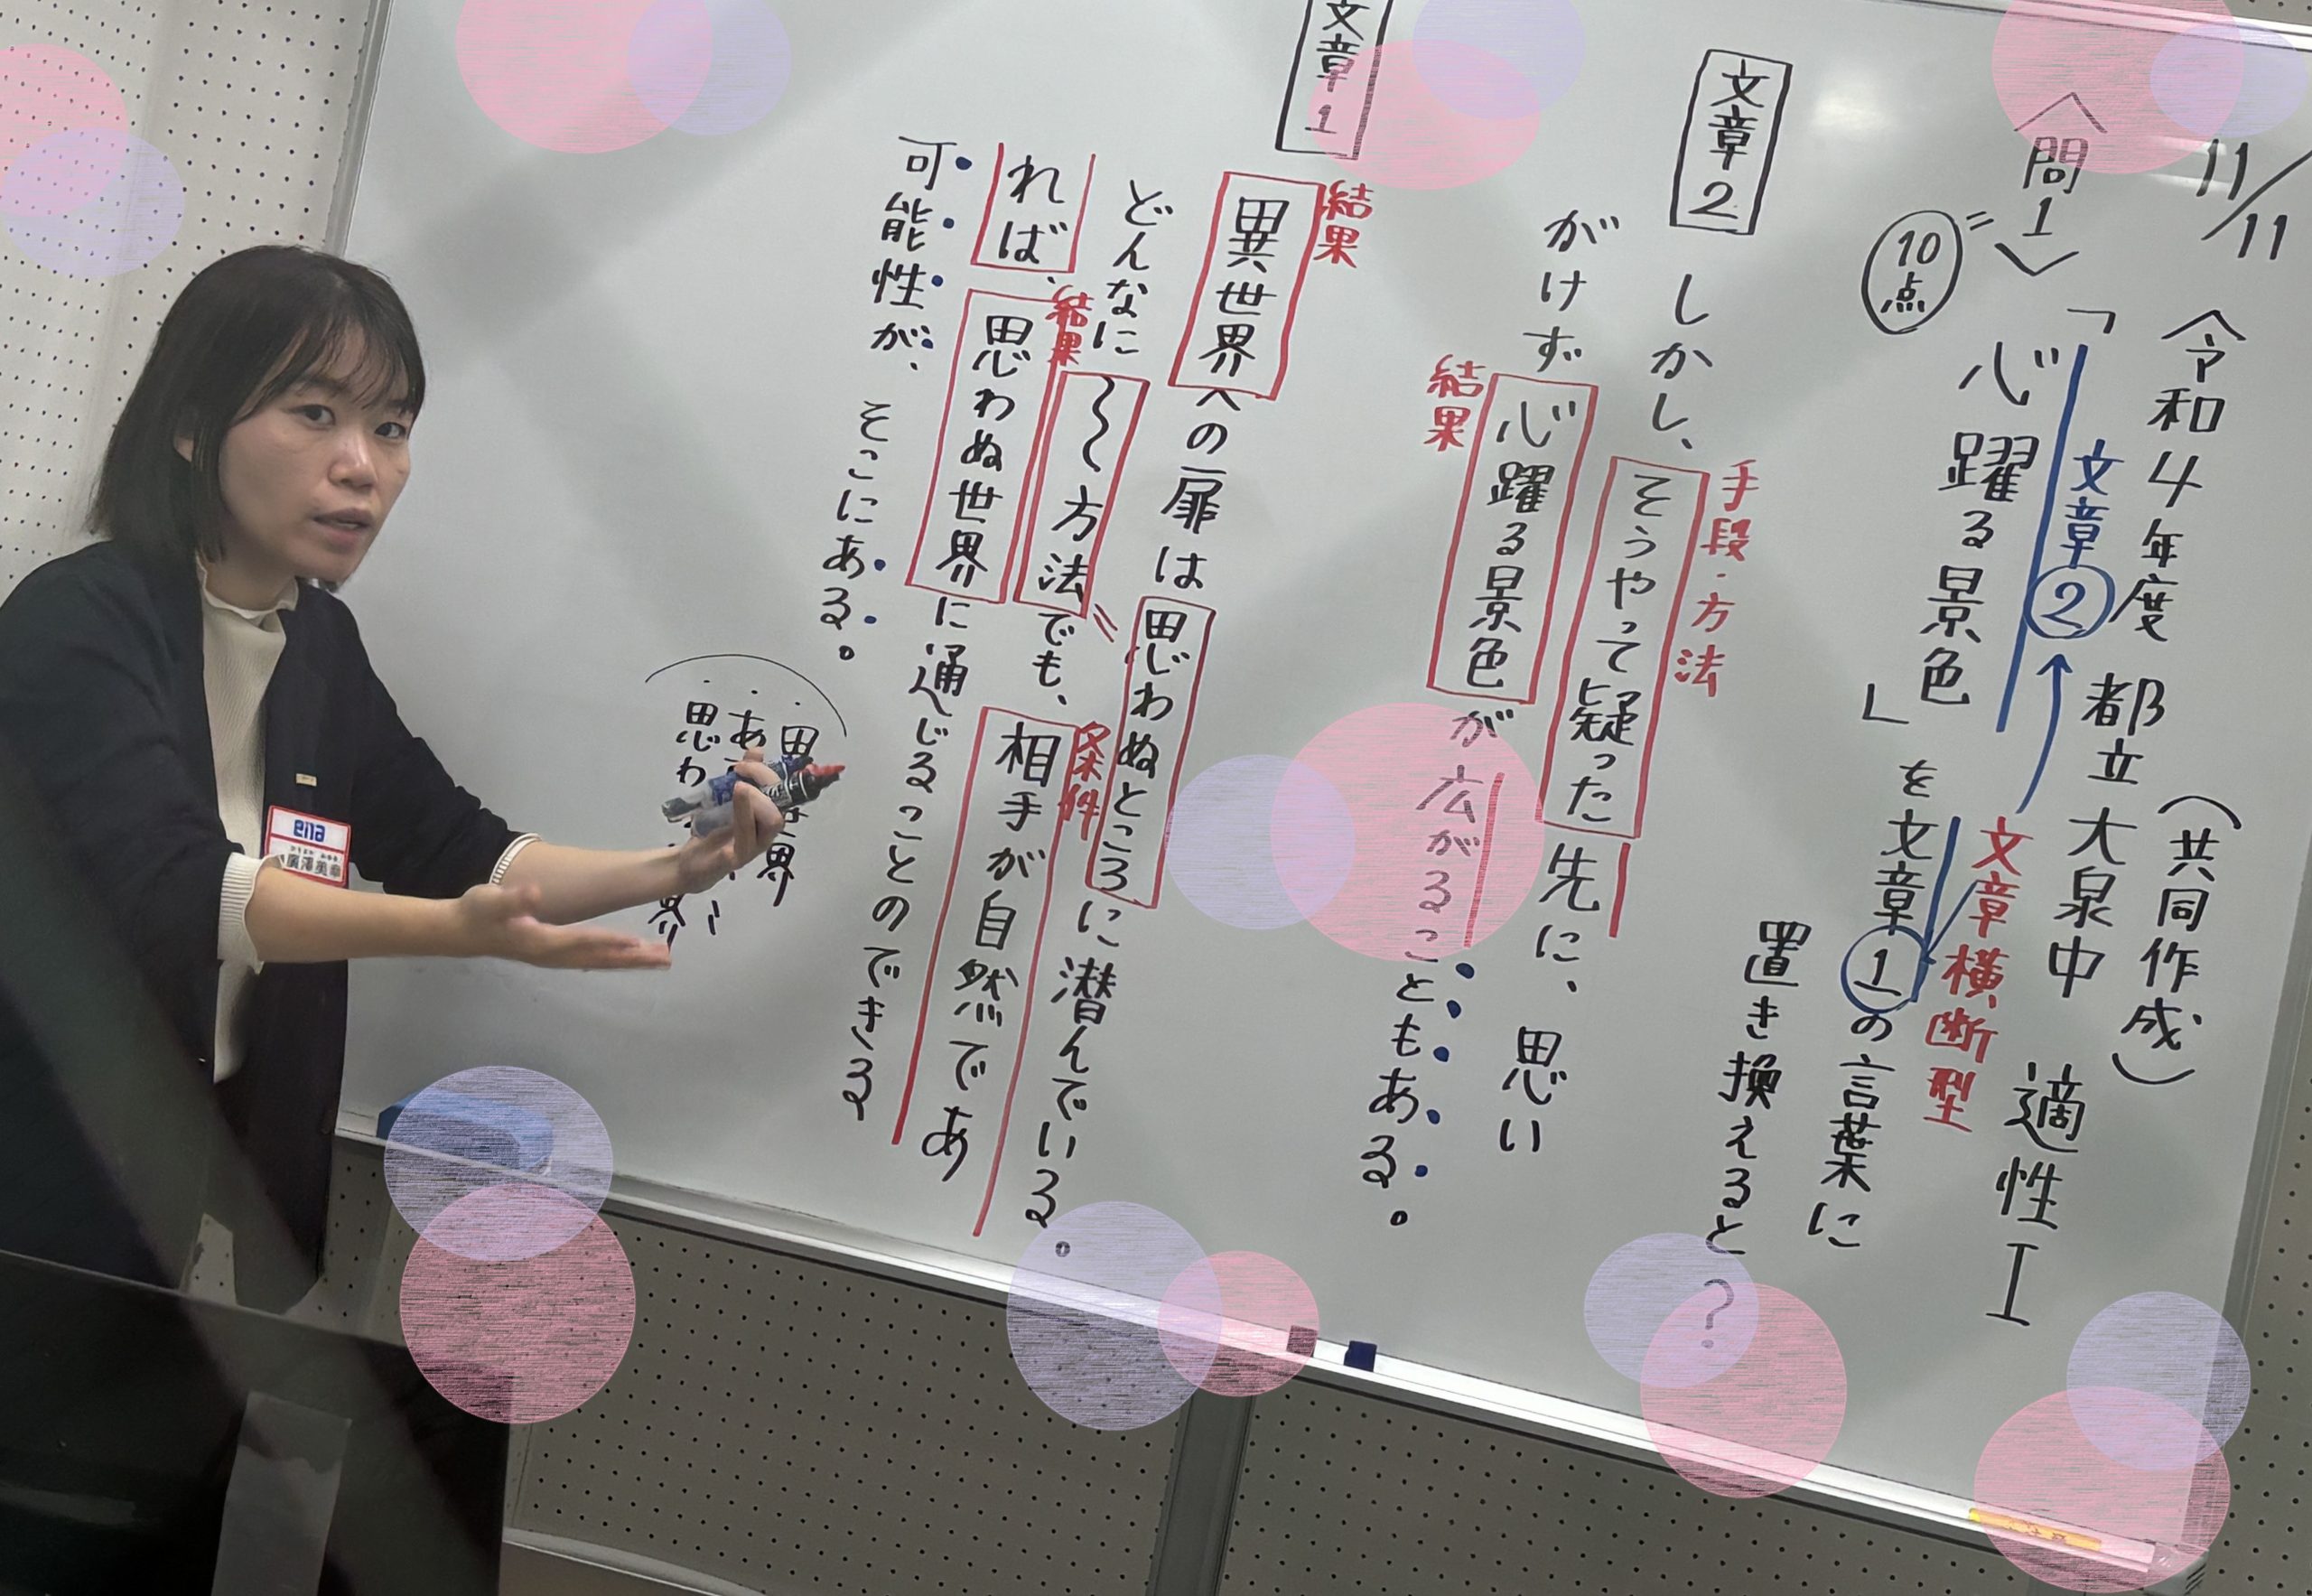 11/11
令和4年度 都立大泉中 適性Ⅰ
(共同作成)
〈問1〉
10点
「心躍る景色」を文章①の言葉に
置き換えると?
文章②
文章横断型
文章2
しかし、そうやって疑った先に、思い
がけず心躍る景色が広がることもある。
手段・方法
結果
文章1
異世界への扉は思わぬところに潜んでいる。
結果
どんなに〜方法でも、相手が自然であ
れば、思わぬ世界に通じることのできる
結果
条件
可能性が、そこにある。
思わ
ena